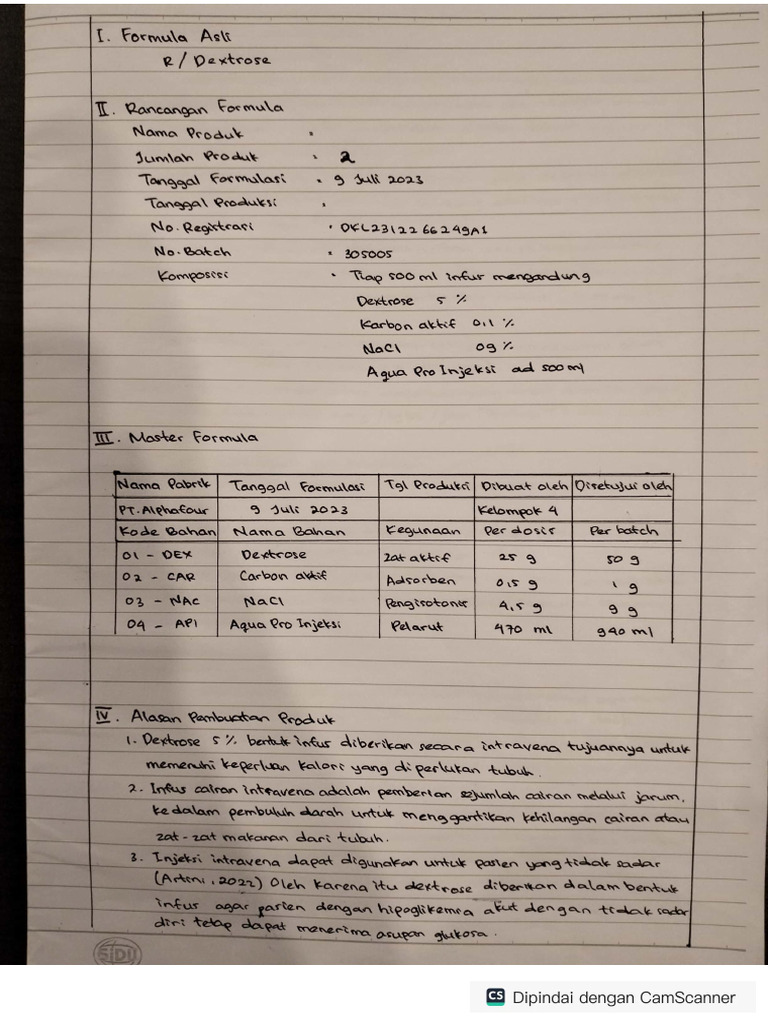 I. Formula Asli
R/ Dextrose
II. Rancangan Formula
Nama Produk :
Jumlah Produk : 2
Tanggal Formulasi : 9 Juli 2023
Tanggal Produksi :
No. Registrasi : DKL2312266249A1
No. Batch : 305005
Komposisi : Tiap 500 ml infus mengandung
Dextrose 5 %
Karbon aktif 0,1 %
NaCl 0,9 %
Aqua Pro Injeksi ad 500 ml
III. Master Formula
Nama Pabrik Tanggal Formulasi Tgl Produksi Dibuat oleh Disetujui oleh
PT. Alphafour 9 Juli 2023 Kelompok 4
Kode Bahan Nama Bahan Kegunaan Per dosis Per batch
01 - DEX Dextrose zat aktif 25 g 50 g
02 - CAR Carbon aktif Adsorben 0,5 g 1 g
03 - NAC NaCl Pengisotonis 4,5 g 9 g
04 - API Aqua Pro Injeksi Pelarut 470 ml 940 ml
IV. Alasan Pembuatan Produk
1. Dextrose 5 % bentuk infus diberikan secara intravena tujuannya untuk
memenuhi keperluan kalori yang diperlukan tubuh.
2. Infus cairan intravena adalah pemberian sejumlah cairan melalui jarum,
kedalam pembuluh darah untuk menggantikan kehilangan cairan atau
zat-zat makanan dari tubuh.
3. Injeksi intravena dapat digunakan untuk pasien yang tidak sadar
(Artini, 2022) Oleh karena itu dextrose diberikan dalam bentuk
infus agar pasien dengan hipoglikemia akut dengan tidak sadar
diri tetap dapat menerima asupan glukosa.
SIDU
CS Dipindai dengan CamScanner